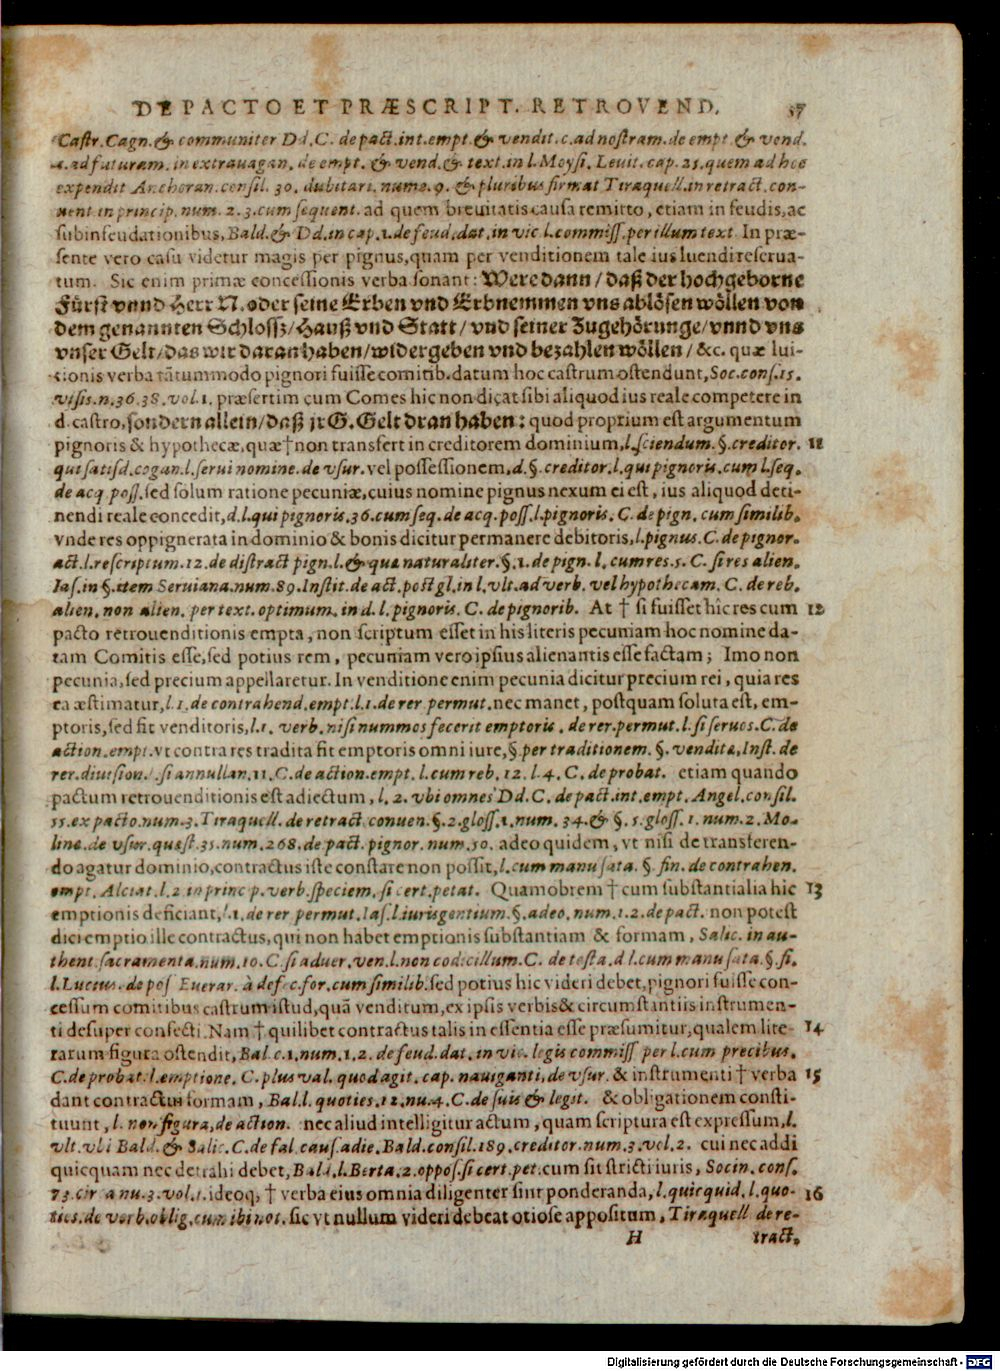 DE PACTO ET PRÆSCRIPT. RETROVEND. 57
Castr. Cagn. & communiter Dd. C. de pact. int. empt. & vendit. c. ad nostram. de empt & vend.
1. ad futuram. in extrauagan. de empt. & vend. & text. in l. Moysi. Leuit. cap. 25. quem ad hoc
expendit Ancharan. consil. 30. dubitari. nume. 9. & pluribus firmat Tiraquell. in retract. con-
uent. in princip. num. 2. 3. cum sequent. ad quem breuitatis causa remitto, etiam in feudis, ac
subinfeudationibus, Bald. & Dd. in cap. 1. de feud. dat. in vic. l. commiss. per illum text. In præ-
sente vero casu videtur magis per pignus, quam per venditionem tale ius luendi reserua-
tum. Sic enim primæ concessionis verba sonant: Were dann / daß der hochgeborne
Fürst vnnd Herr N. oder seine Erben vnd Erbnemmen vns ablösen wöllen von
dem genannten Schlossz / Hauß vnd Statt / vnd seiner Zugehörunge / vnnd vns
vnser Gelt / das wir daran haben / widergeben vnd bezahlen wöllen / &c. quæ lui-
tionis verba tãtummodo pignori fuisse comitib. datum hoc castrum ostendunt, Soc. cons. 15.
visis. n. 36. 38. vol. 1. præsertim cum Comes hic non dicat sibi aliquod ius reale competere in
d. castro, sondern allein / daß jr G. Gelt dran haben: quod proprium est argumentum
pignoris & hypothecæ, quæ † non transfert in creditorem dominium, l. sciendum. §. creditor. 11
qui satisd. cogan. l. serui nomine. de vsur. vel possessionem, d. §. creditor. l. qui pignoris. cum l. seq.
de acq. poss. sed solum ratione pecuniæ, cuius nomine pignus nexum ei est, ius aliquod deti-
nendi reale concedit, d. l. qui pignoris. 36. cum seq. de acq. poss. l. pignoris. C. de pign. cum similib.
vnde res oppignerata in dominio & bonis dicitur permanere debitoris, l. pignus. C. de pignor.
act. l. rescriptum. 12. de distract pign. l. & quæ naturaliter. §. 1. de pign. l. cum res. 5. C. si res alien.
Ias. in §. item Seruiana. num. 89. Instit. de act. post gl. in l. vlt. ad verb. vel hypothecam. C. de reb.
alien. non alien. per text. optimum. in d. l. pignoris. C. de pignorib. At † si fuisset hic res cum 12
pacto retrouenditionis empta, non scriptum esset in his literis pecuniam hoc nomine da-
tam Comitis esse, sed potius rem, pecuniam vero ipsius alienantis esse factam; Imo non
pecunia, sed precium appellaretur. In venditione enim pecunia dicitur precium rei, quia res
ea æstimatur, l. 1. de contrahend. empt. l. 1. de rer permut. nec manet, postquam soluta est, em-
ptoris, sed fit venditoris, l. 1. verb. nisi nummos fecerit emptoris. de rer. permut. l. si seruos. C. de
action. empt. vt contra res tradita fit emptoris omni iure, § per traditionem. §. vendita, Inst. de
rer. diuision. l. si annullan. 11. C. de action. empt. l. cum reb. 12. l. 4. C. de probat. etiam quando
pactum retrouenditionis est adiectum, l. 2. vbi omnes Dd. C. de pact. int. empt. Angel. consil.
55. ex pacto. num. 3. Tiraquell. de retract. conuen. §. 2. gloss. 1. num. 34. & §. 5. gloss. 1. num. 2. Mo-
line. de vsur. quæst. 35. num. 268. de pact. pignor. num. 50. adeo quidem, vt nisi de transferen-
do agatur dominio, contractus iste constare non possit, l. cum manu sata. § fin. de contrahen.
empt. Alciat. l. 2 in princip. verb. speciem. si cert. petat. Quamobrem † cum substantialia hic 13
emptionis deficiant, l. 1. de rer permut. Ias. l. iurisgentium. §. adeo. num. 1. 2. de pact. non potest
dici emptio ille contractus, qui non habet emptionis substantiam & formam, Salic. in au-
thent. sacramenta. num. 10. C. si aduer. ven. l. non codicillum. C. de testa. d l. cum manu sata. §. si.
l. Lucius. de pos Euerar. à defec. for. cum similib. sed potius hic videri debet, pignori fuisse con-
cessum comitibus castrum istud, quã venditum, ex ipsis verbis & circumstantiis instrumen-
ti desuper confecti. Nam † quilibet contractus talis in essentia esse præsumitur, qualem lite- 14
rarum figura ostendit, Bal. c. 1. num. 1. 2. de feud. dat. in vic. legis commiss per l. cum precibus.
C. de probat. l. emptione. C. plus val. quod agit. cap. nauiganti, de vsur. & instrumenti † verba 15
dant contractus formam, Bal. l. quoties. 12. nu. 4. C. de suis & legit. & obligationem consti-
tuunt, l. non figura, de action. nec aliud intelligitur actum, quam scriptura est expressum, l.
vlt. vbi Bald. & Salic. C. de fal. caus. adie. Bald. consil. 189. creditor. num. 3. vol. 2. cui nec addi
quicquam nec detrahi debet, Bald. l. Berta. 2. oppos. si cert. pet. cum sit stricti iuris, Socin. cons.
73. cir a nu. 3. vol. 1. ideoq; † verba eius omnia diligenter sint ponderanda, l. quicquid. l. quo- 16
ties. de verb. oblig. cum ibi not. sic vt nullum videri debeat otiose appositum, Tiraquell de re-
H tract.
Digitalisierung gefördert durch die Deutsche Forschungsgemeinschaft - DFG